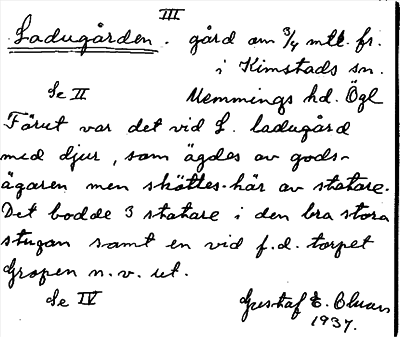 III
Ladugården. gård om 3/4 mtl. fr.
i Kimstads sn.
Se II Memmings hd. Ögl
Förut var det vid L. ladugård
med djur, som ägdes av gods-
ägaren men sköttes här av statare.
Det bodde 3 statare i den bra stora
stugan samt en vid f.d. torpet
Gropen n.v. ut.
Se IV Gustaf E.
1937.